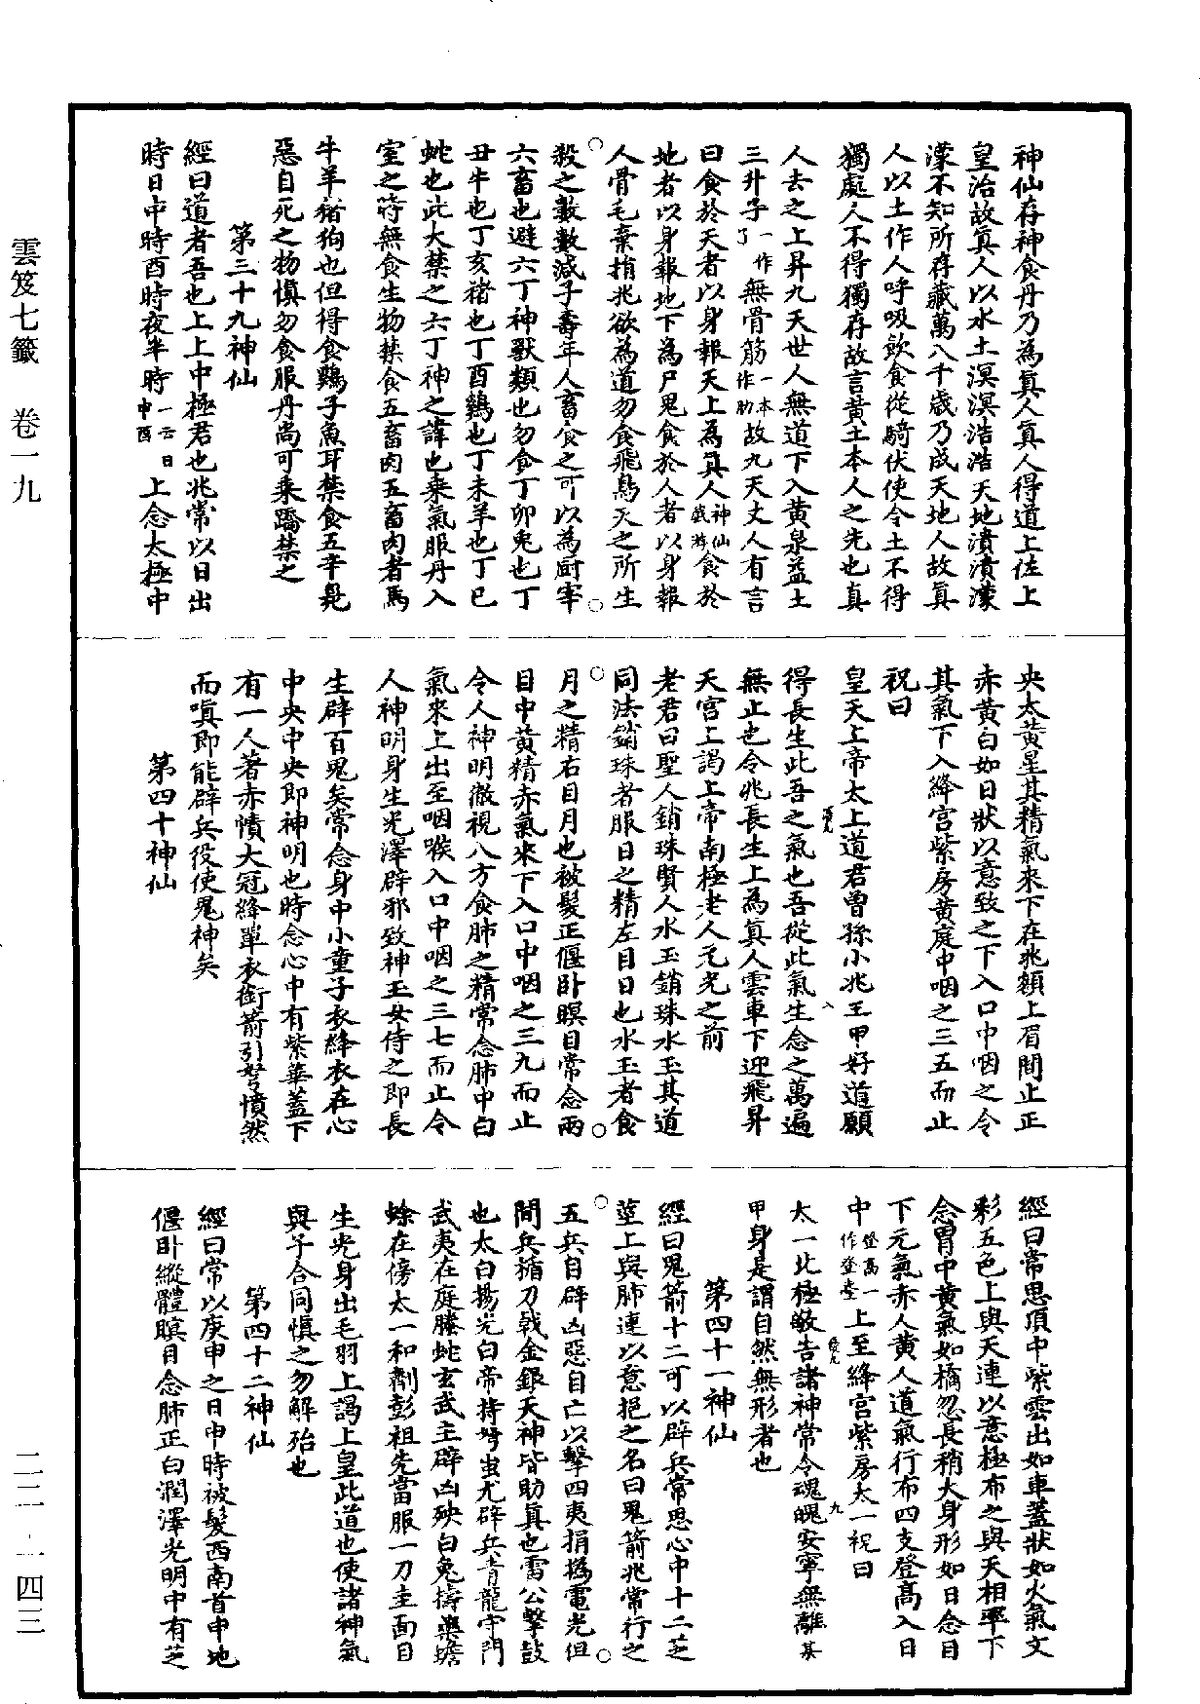 神仙存神食丹乃為真人真人得道上佐上
皇治故真人以水土溟溟浩浩天地漬漬濛
濛不知所存藏萬八千歲乃成天地人故真
人以土作人呼吸飲食從騎伏使令土不得
獨處人不得獨存故言黄土本人之先也真
人去之上昇九天世人無道下入黄泉益土
三升子一作了無骨筋一本作肋故九天丈人有言
曰食於天者以身報天上為真人神仙食於
地者以身報地下為尸鬼食於人者以身報
人骨毛棄捐兆欲為道勿食飛鳥天之所生
殺之數數減子壽年人畜食之可以為厨宰
六畜也避六丁神獸類也勿食丁卯兔也丁
丑牛也丁亥猪也丁酉鷄也丁未羊也丁巳
蛇也此大禁之六丁神之諱也乗氣服丹入
室之時無食生物禁食五畜肉五畜肉者馬
牛羊猪狗也但得食鷄子魚耳禁食五辛晃
惡自死之物慎勿食服丹尚可乗蹻禁之
第三十九神仙
經曰道者吾也上上中極君也兆常以日出
時日中時酉時夜半時一云日申酉上念太極中
央太黄星其精氣來下在兆額上眉間止正
赤黄白如日狀以意致之下入口中咽之令
其氣下入絳宫紫房黄庭中咽之三五而止
祝曰
皇天上帝太上道君曽孫小兆王甲好道願
得長生此吾之氣也吾從此氣生念之萬遍
無止也令兆長生上為真人雲車下迎飛昇
天宫上謁上帝南極老人元光之前
老君曰聖人銷珠賢人水玉銷珠水玉其道
同法銷珠者服日之精左目日也水玉者食
月之精右目月也被髮正偃卧瞑目常念兩
目中黄精赤氣來下入口中咽之三九而止
令人神明徹視八方食肺之精常念肺中白
氣來上出至咽喉入口中咽之三七而止令
人神明身生光澤辟邪致神玉女侍之即長
生辟百鬼矣常念身中小童子衣絳衣在心
中央中央即神明也時念心中有紫華蓋下
有一人著赤幘大冠絳單衣銜箭引弩憤然
而嗔即能辟兵役使鬼神矣
第四十神仙
經曰常思頂中紫雲出如車蓋狀如火氣文
彩五色上與天連以意極布之與天相率下
念胃中黄氣如橘忽長稍大身形如日念目
下元氣赤人黄人道氣行布四支登高入日
中登高一作登臺上至絳宫紫房太一祝曰
太一北極敬告諸神常令魂魄安寧無離某
甲身是謂自然無形者也
第四十一神仙
經曰鬼箭十二可以辟兵常思心中十二芝
莖上與肺連以意挹之名曰鬼箭兆常行之
五兵自辟凶惡自亡以擊四夷捐撝電光但
聞兵楯刀戟金銀天神皆助真也雷公擊鼓
也太白揚光白帝持弩蚩尤辟兵青龍守門
武夷在庭螣蛇玄武主辟凶殃白兔擣藥蟾
蜍在傍太一和劑彭祖先當服一刀圭面目
生光身出毛羽上謁上皇此道也使諸神氣
與子合同慎之勿解殆也
第四十二神仙
經曰常以庚申之日申時被髮西南首申地
偃卧縱體瞑目念肺正白潤澤光明中有芝
雲笈七籤　卷一九
二二-一四三